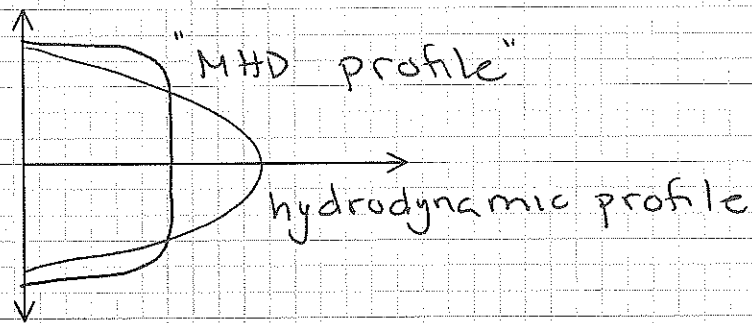 "MHD profile"
hydrodynamic profile